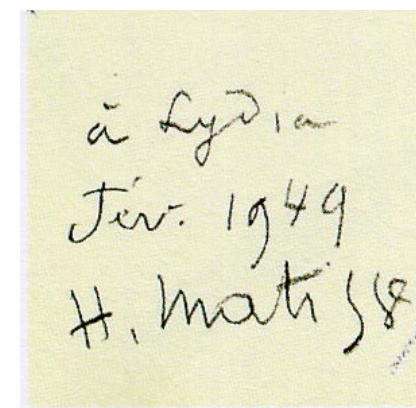 à Lydia
fév. 1949
H. Matisse